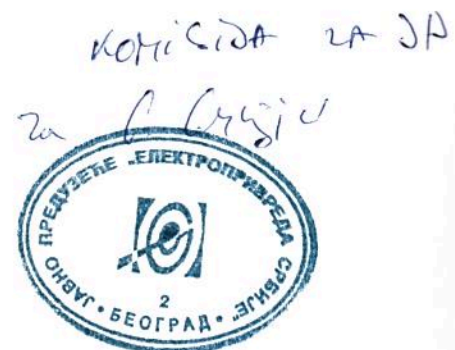 KOMISIJA ZA JA
za
ЈАВНО ПРЕДУЗЕЋЕ „ЕЛЕКТРОПРИВРЕДА СРБИЈЕ"
2
• БЕОГРАД •